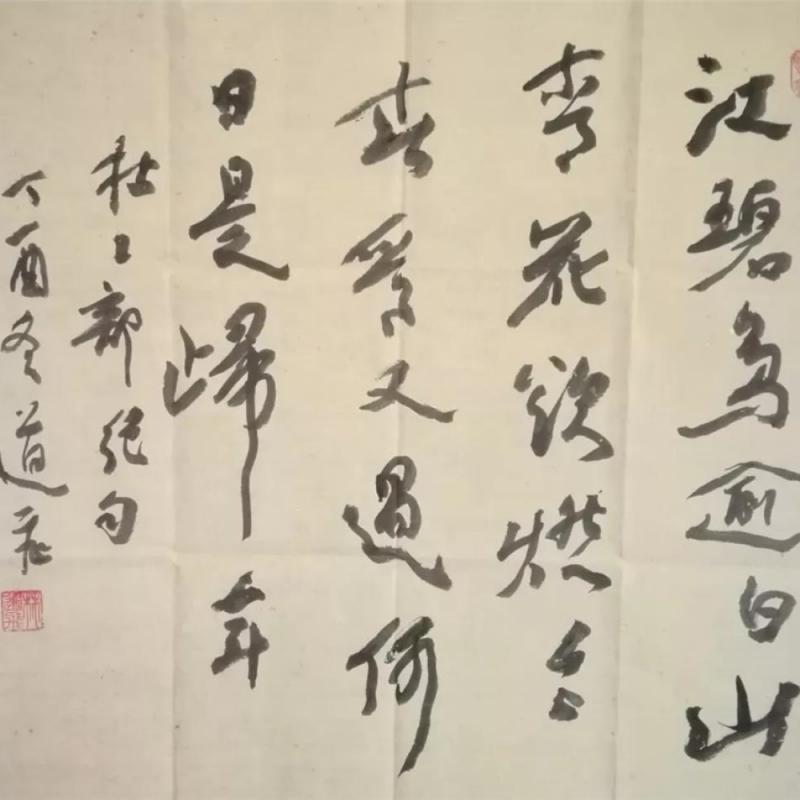 江碧鸟逾白山
青花欲燃今
春看又過何
日是歸年
杜工部絕句
丁酉冬道